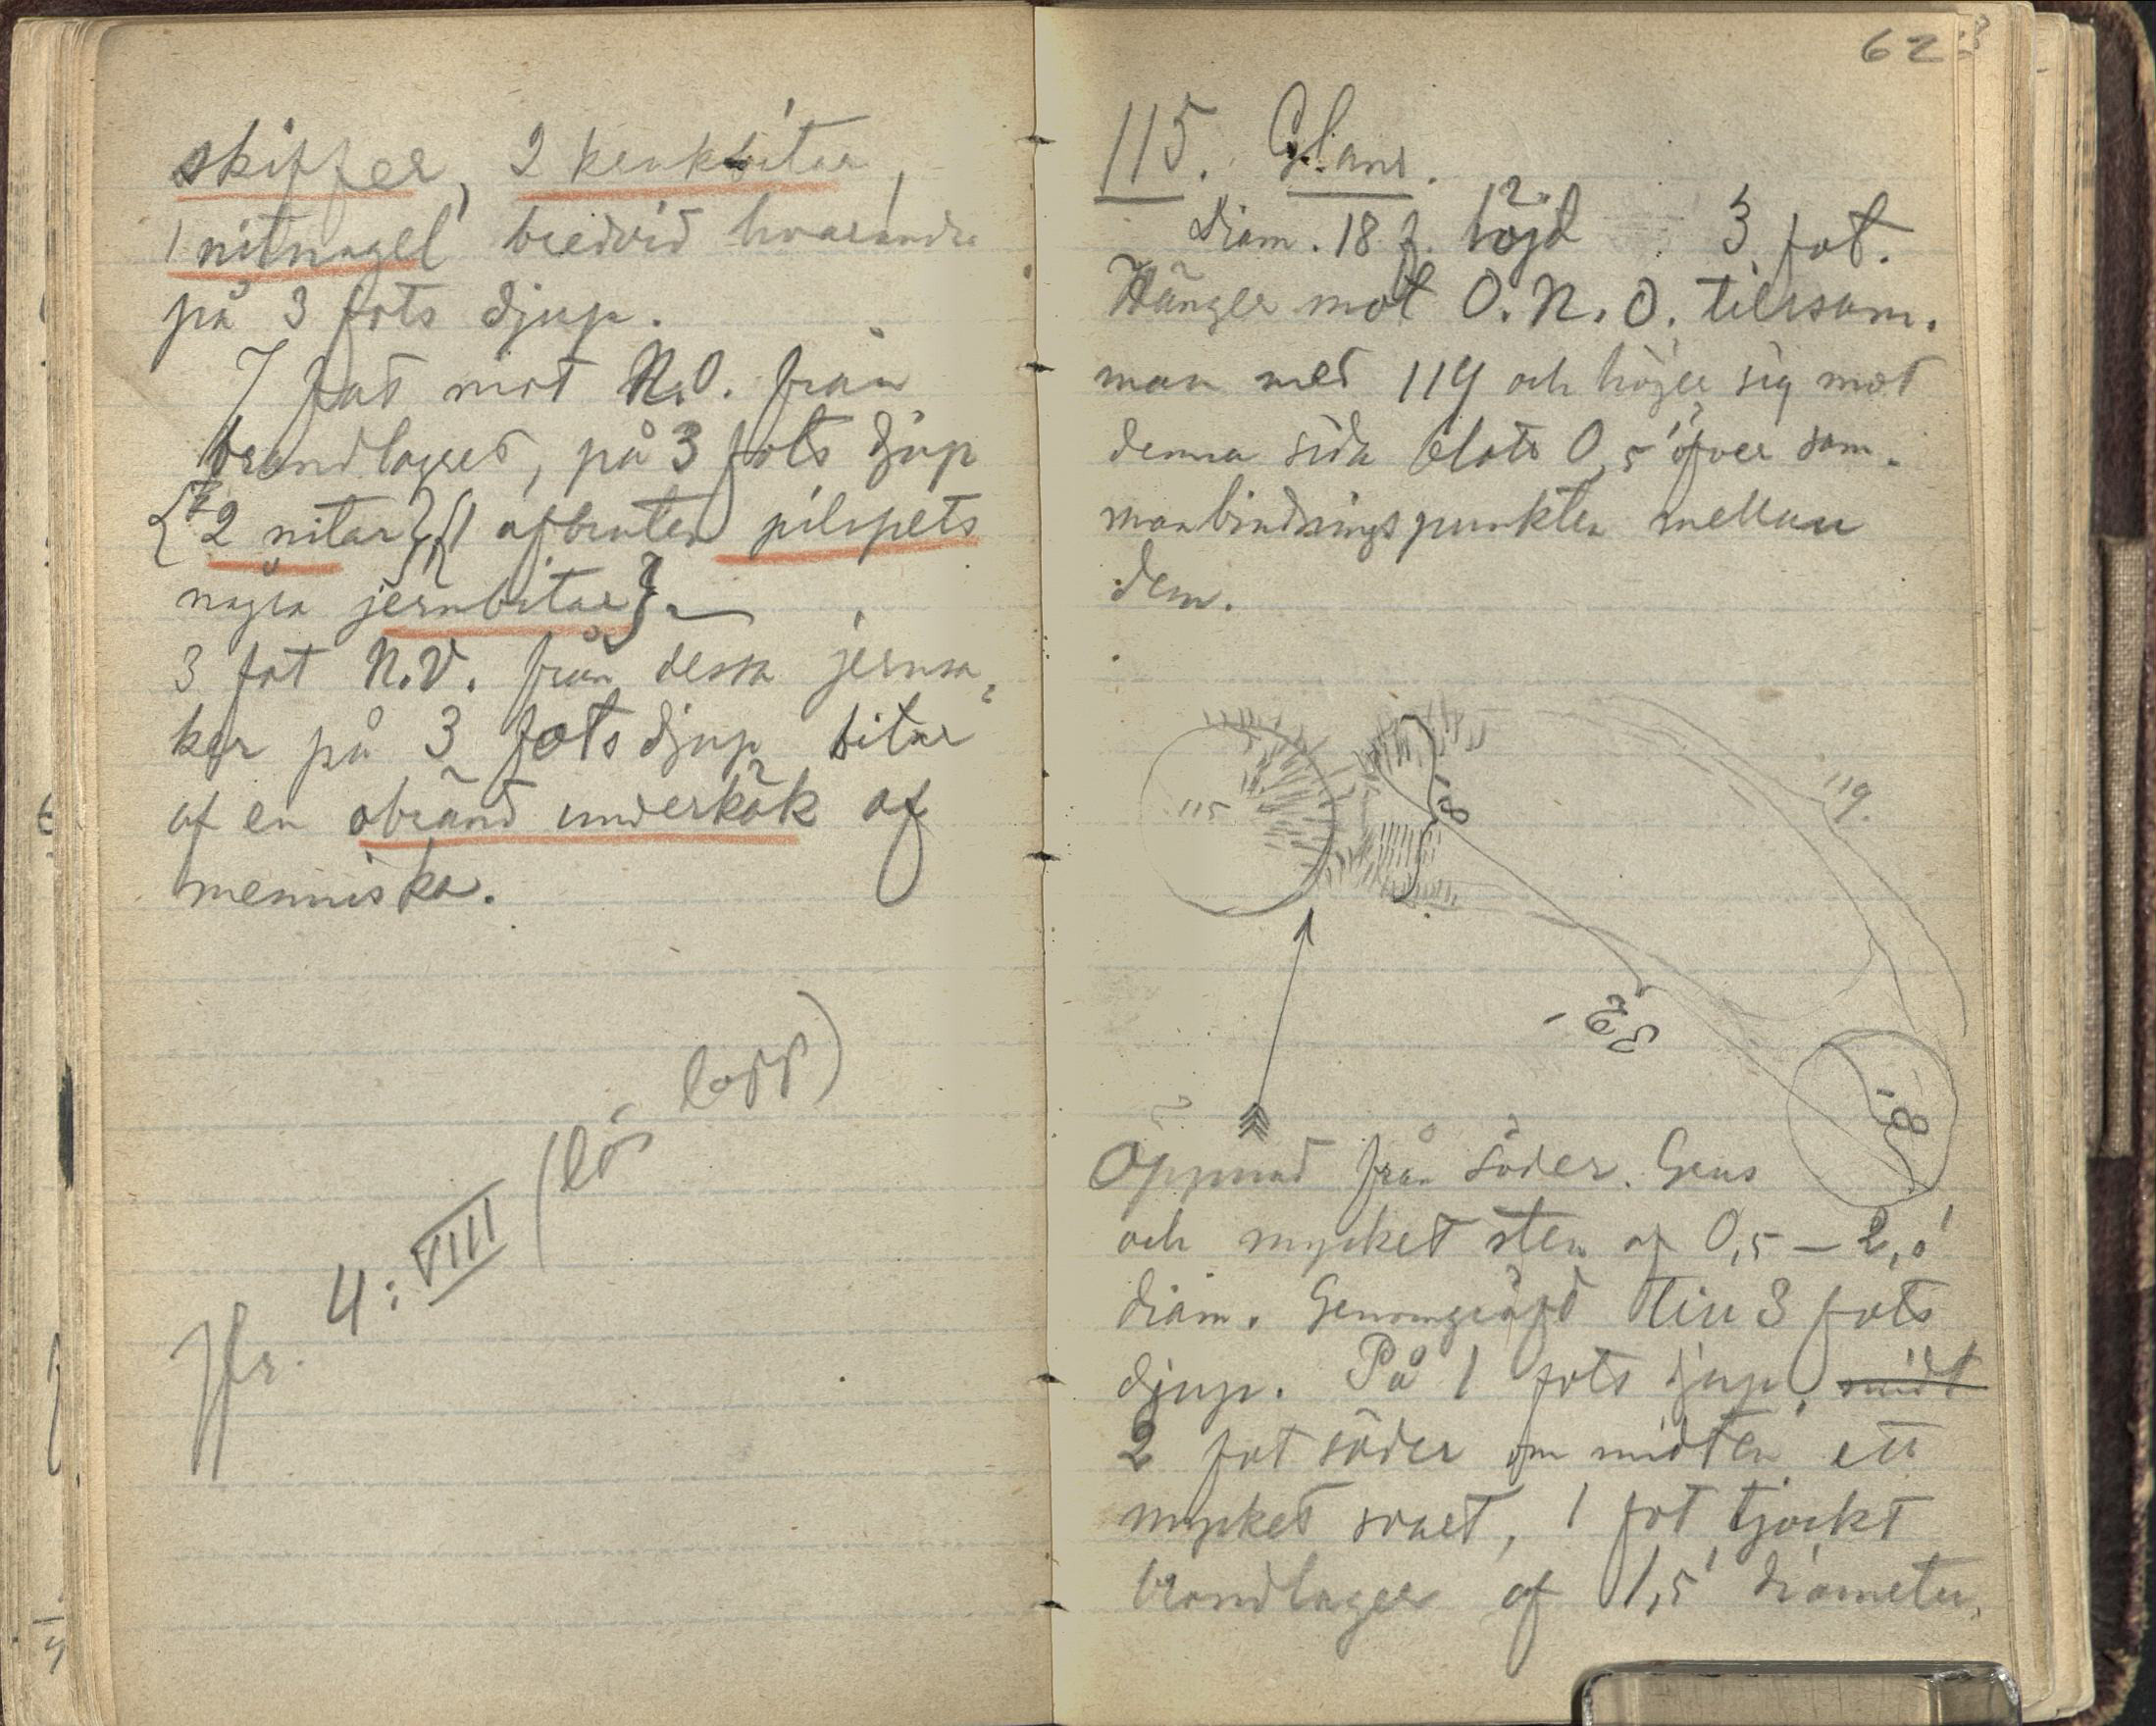 skiffer, 2 krukbitar,
1 nitnagel bredvid hvarandra
på 3 fots djup.
7 fot mot N.O. från
brandlagret, på 3 fots djup
{2 nitar}, {1 afbruten pilspets
några jernbitar}.
3 fot N.V. från dessa jernsa-
ker på 3 fots djup bitar
af en obränd underkäk af
menniska.
Jfr. 4: VIII (lös lapp)
62
115. Glans.
Diam. 18 f. höjd 3 fot.
Hänger mot O.N.O. tillsam-
man med 119 och höjer sig mot
denna sida blott 0,5' öfver sam-
manbindningspunkten mellan
dem.
115
18
119.
32
18
Öppnad från söder. Grus
och mycket sten af 0,5 — 2,0'
diam. Genomgräfd till 3 fots
djup. På 1 fots djup, midt
2 fot söder om midten ett
mycket svart, 1 fot tjockt
brandlager af 1,5' diameter.